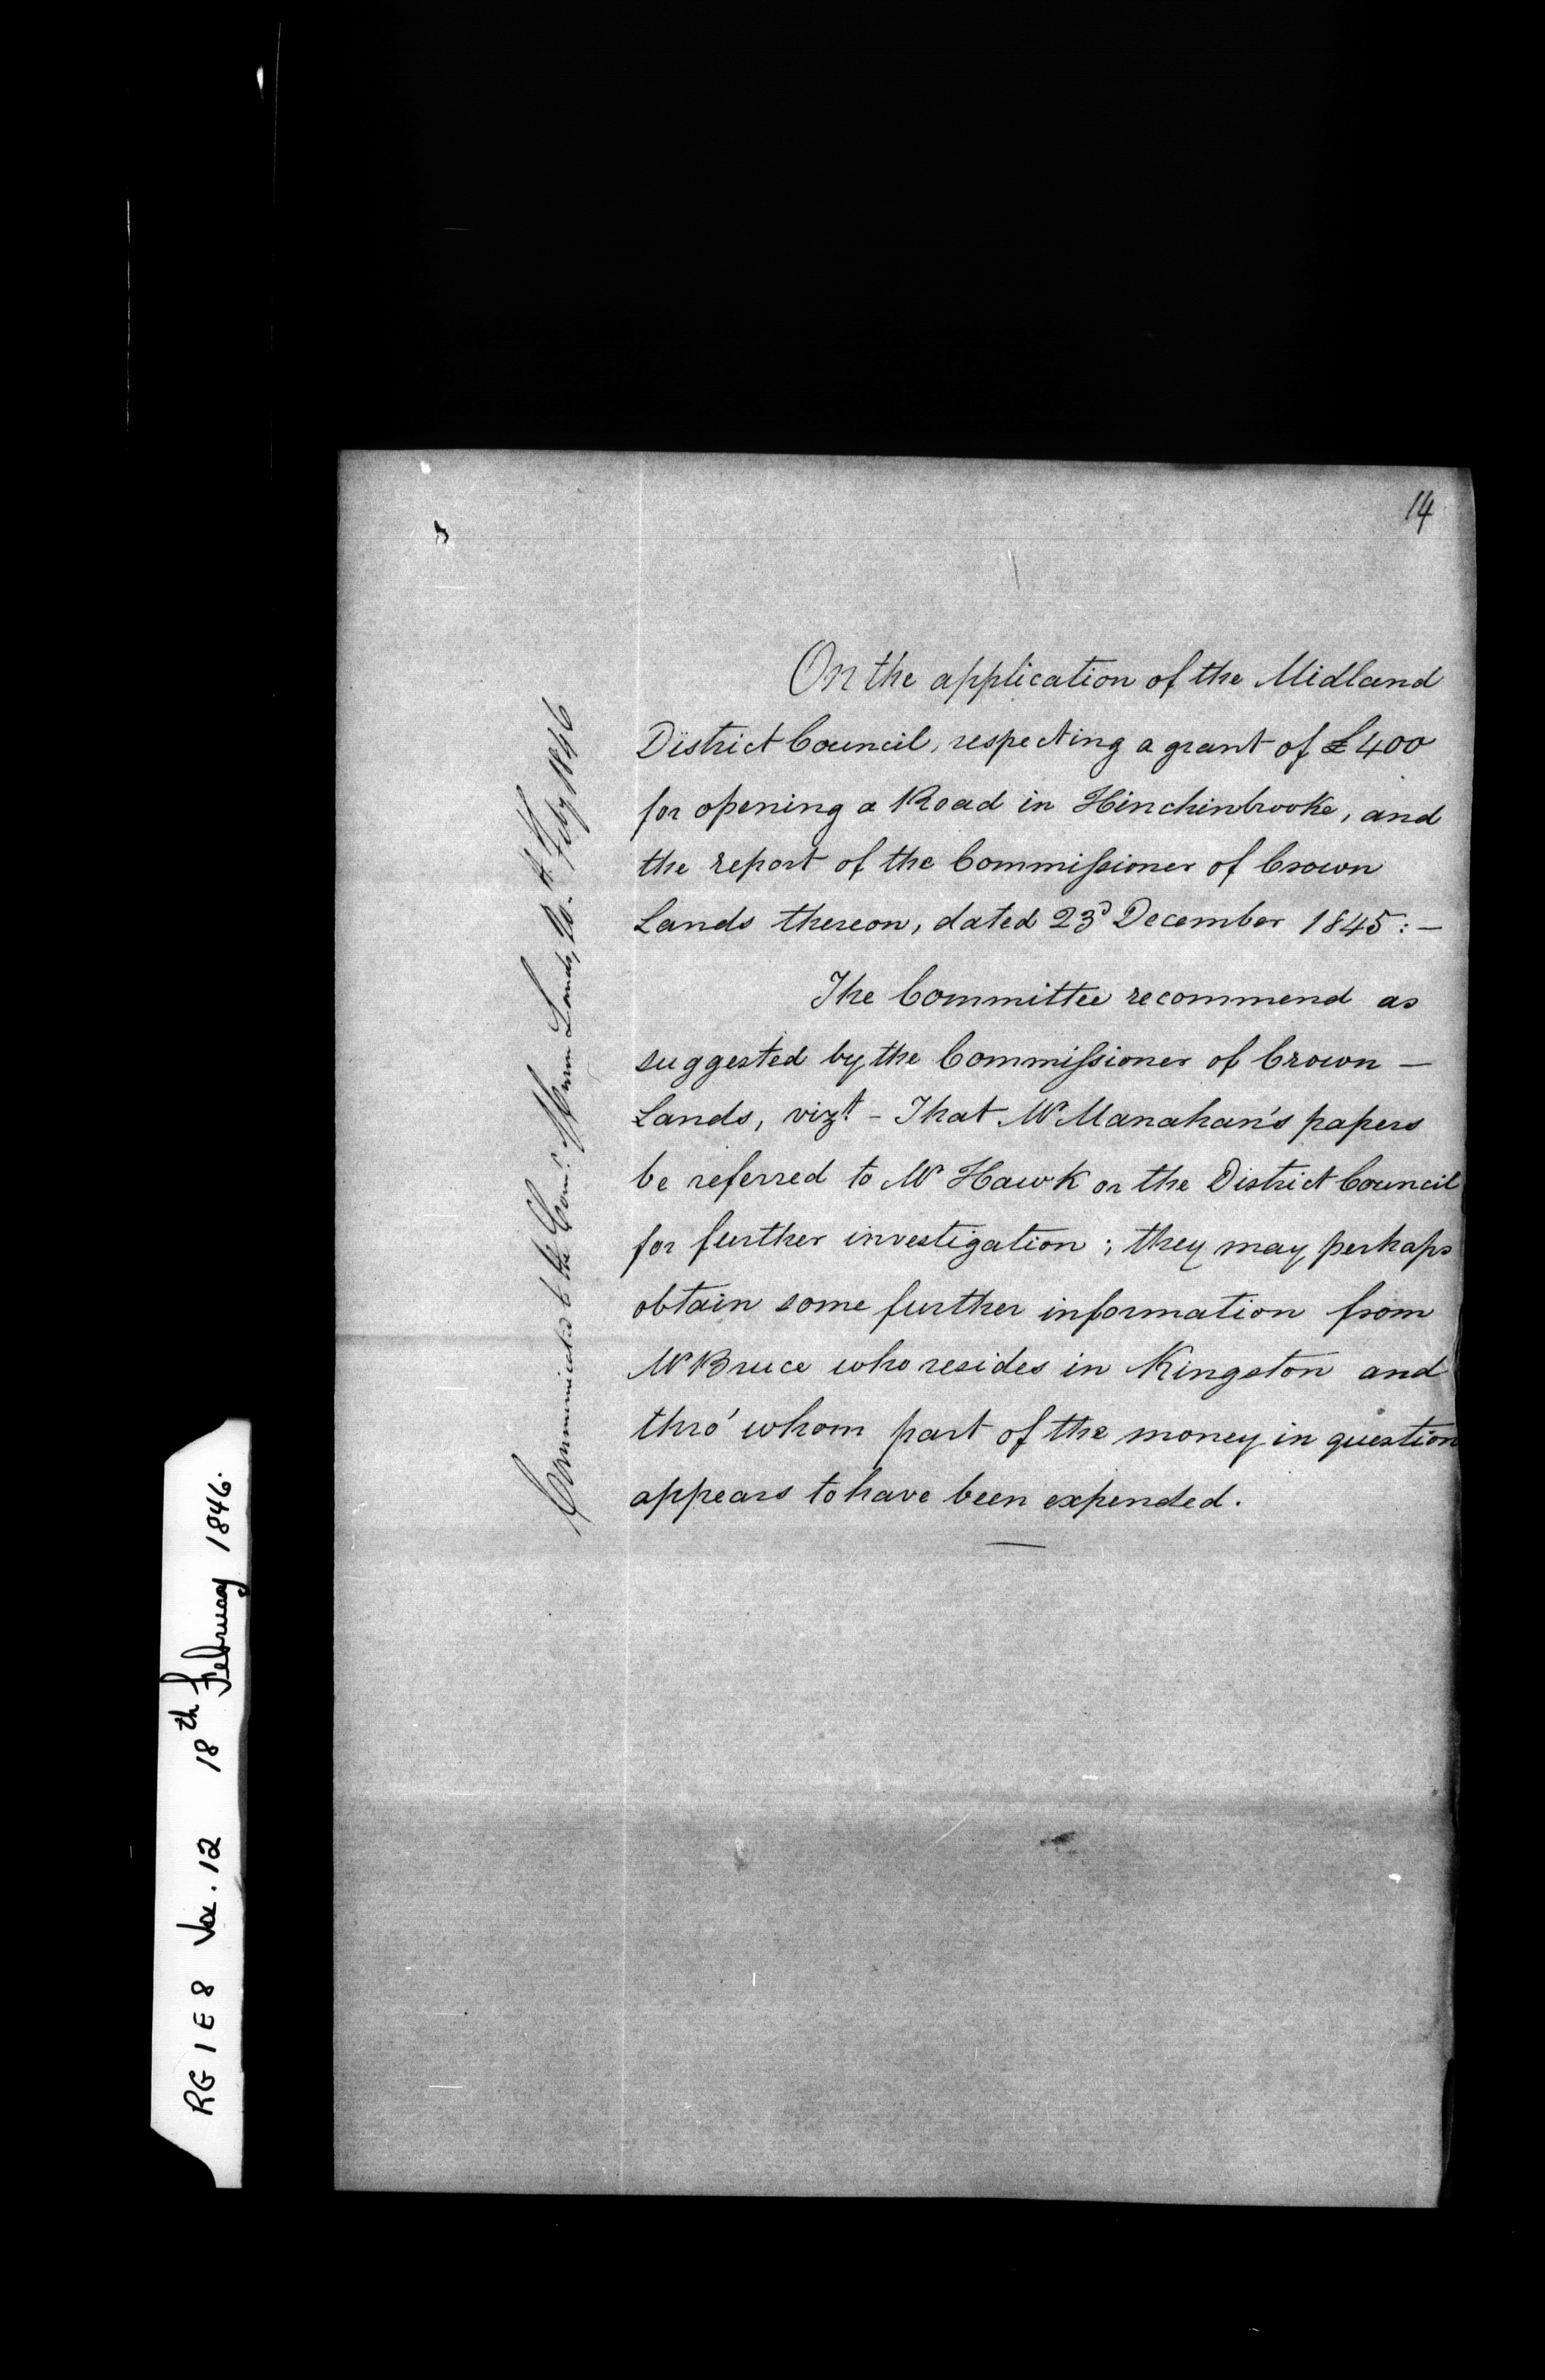 14
On the application of the Midland
District Council, respecting a grant of £400
for opening a Road in Hinchinbrooke, and
the report of the Commissioner of Crown
Lands thereon, dated 23d December 1845:—
The Committee recommend as
suggested by the Commissioner of Crown —
Lands, vizt. – That Mr Manahan's papers
be referred to Mr Hawk or the District Council
for further investigation; they may perhaps
obtain some further information from
Mr Bruce who resides in Kingston and
thro' whom part of the money in question
appears to have been expended.
Communicated to the Comr. Crown Lands, Feby 1846
RG 1 E 8 Vol. 12 18th February 1846.